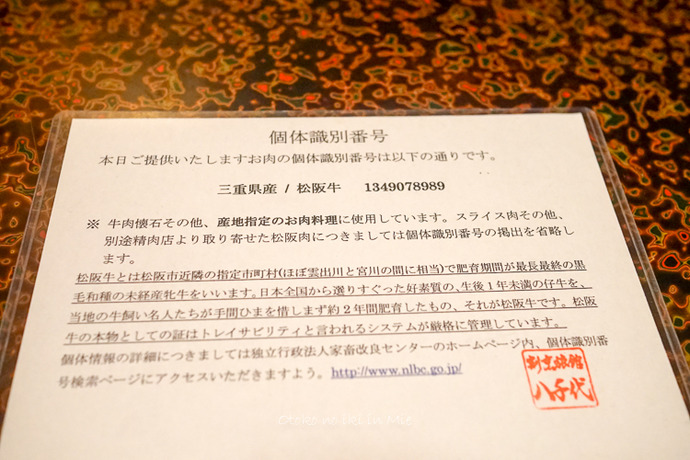 個体識別番号
本日ご提供いたしますお肉の個体識別番号は以下の通りです。
三重県産 / 松阪牛 1349078989
※ 牛肉懐石その他、産地指定のお肉料理に使用しています。スライス肉その他、
別途精肉店より取り寄せた松阪肉につきましては個体識別番号の掲出を省略し
ます。
松阪牛とは松阪市近隣の指定市町村(ほぼ雲出川と宮川の間に相当)で肥育期間が最長最終の黒
毛和種の未経産牝牛をいいます。日本全国から選りすぐった好素質の、生後１年未満の仔牛を、
当地の牛飼い名人たちが手間ひまを惜しまず約２年間肥育したもの、それが松阪牛です。松阪
牛の本物としての証はトレイサビリティと言われるシステムが厳格に管理しています。
個体情報の詳細につきましては独立行政法人家畜改良センターのホームページ内、個体識別番
号検索ページにアクセスいただきますよう。http://www.nlbc.go.jp/
割烹旅館
八千代